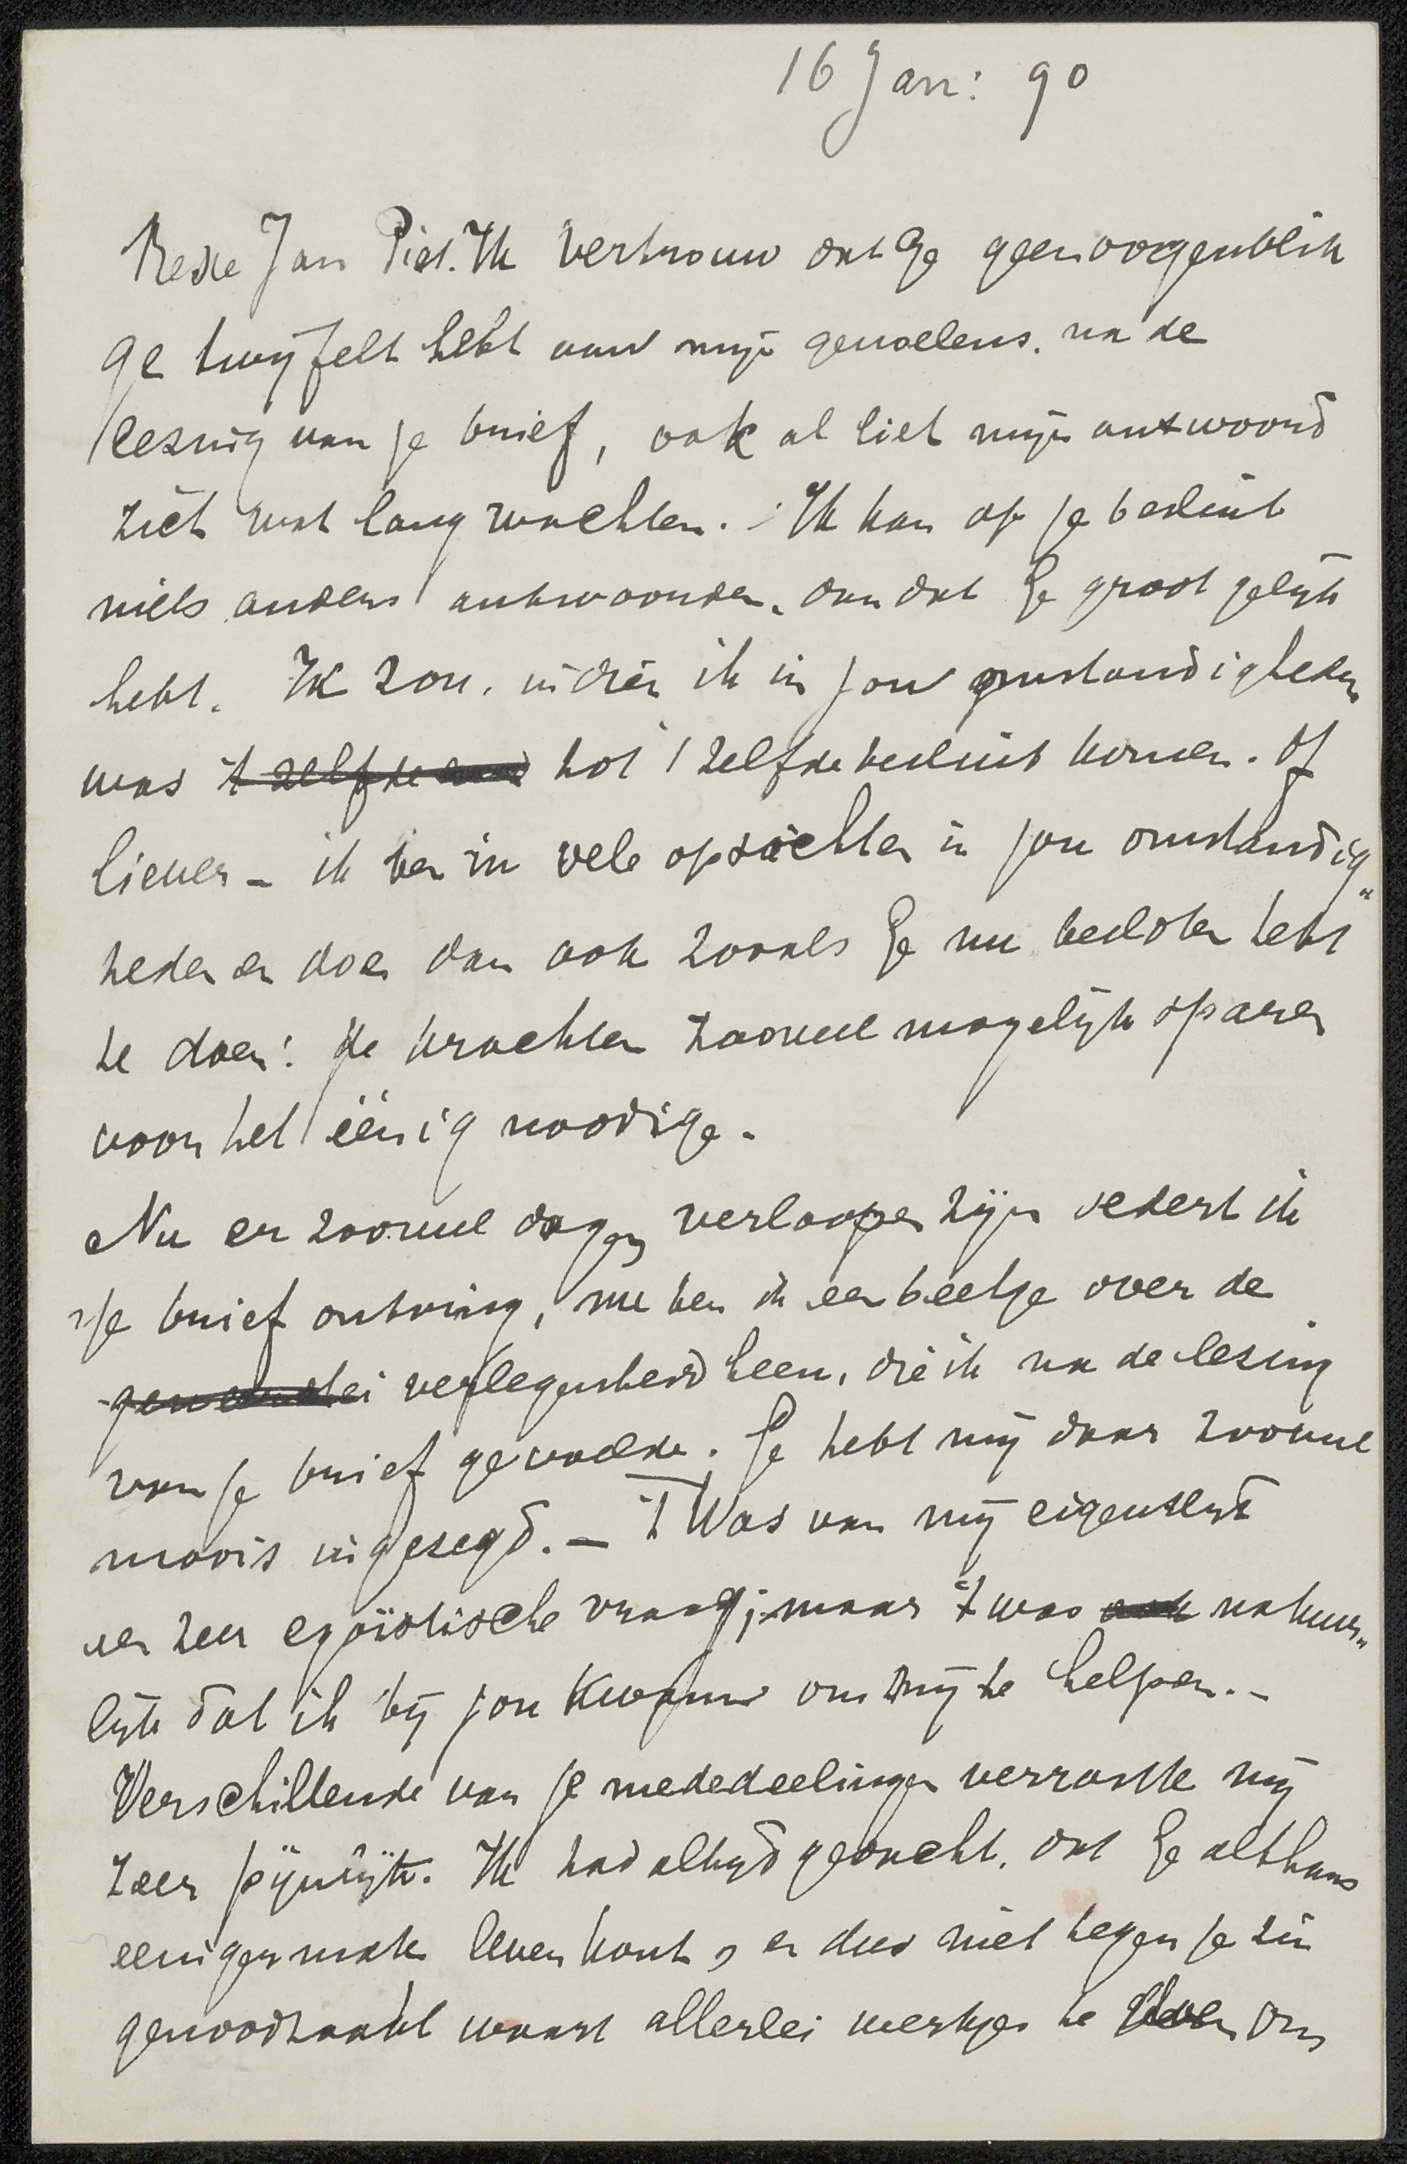 16 Jan: 90
Beste Jan Piet. Ik vertrouw dat ge geen oogenblik
ge twijfelt hebt aan mijn gevoelens. na de
lezing van je brief, ook al liet mijn antwoord
zich wat lang wachten. Ik kan op je besluit
niets anders antwoorden, dan dat Je groot gelijk
hebt. Ik zou, indien ik in jouw omstandigheden
was 't zelfde tot 't zelfde besluit komen. Of
liever - ik ben in vele opzichten in jou omstandig„
heden en doe dan ook zooals Je nu besloten hebt
te doen: de krachten zooveel mogelijk sparen
voor het éénig noodige.
Nu er zooveel dagen verloopen zijn sedert ik
je brief ontving, nu ben ik een beetje over de
verlegenheid heen, die ik na de lezing
van je brief gevoelde. Je hebt mij daar zooveel
moois in gezegd. - 't Was van mij eigenlijk
een zeer egoïstische vraag; maar 't was ook natuur„
lijk dat ik bij jou kwam om mij te helpen. -
Verschillende van je mededeelingen verraste mij
zeer pijnlijk. Ik had altijd gedacht, dat Je althans
eenigermate leven kont, en dus niet tegen je zin
genoodzaakt waart allerlei werkjes te doen om